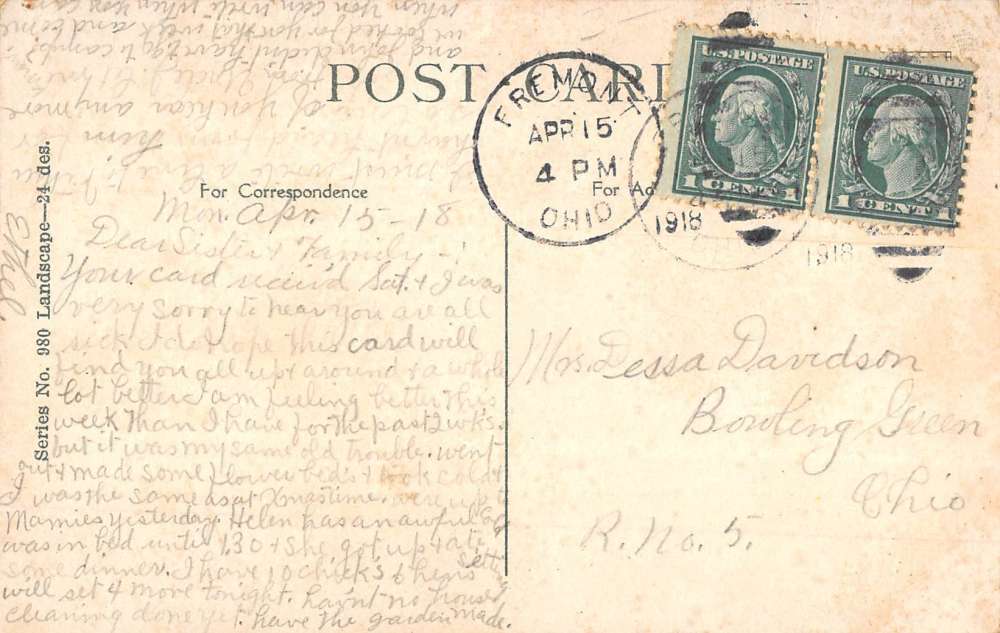 POST CARD
FREMONT
APR 15
4 PM
OHIO
1918
1918
U.S. POSTAGE
1 CENTS 1
U.S. POSTAGE
1 CENTS 1
For Correspondence
For Ad
Series No. 980 Landscape—24 des.
Ethel
Mon. Apr. 15-18
Dear Sister & Family -:
Your card rec'v'd Sat. & I was
very sorry to hear you are all
sick & I do hope this card will
find you all up & around & a whole
lot better. I am feeling better this
week than I have for the past 2 wks.
but it was my same old trouble. went
out & made some flower beds & took cold &
I was the same as at Xmas time. were up to
Mamies yesterday. Helen has an awful cold
was in bed until 1.30 & she got up & ate
some dinner. I have 10 chicks 6 hens setting
will set 4 more tonight. hav'nt no house
cleaning done yet. have the garden made.
I must write a line to
havent from him
if you hear any more
and John didn't have to go to camp.
we looked for you that week and
when you can. write when you can
Mrs Dessa Davidson
Bowling Green
Ohio
R. No. 5.